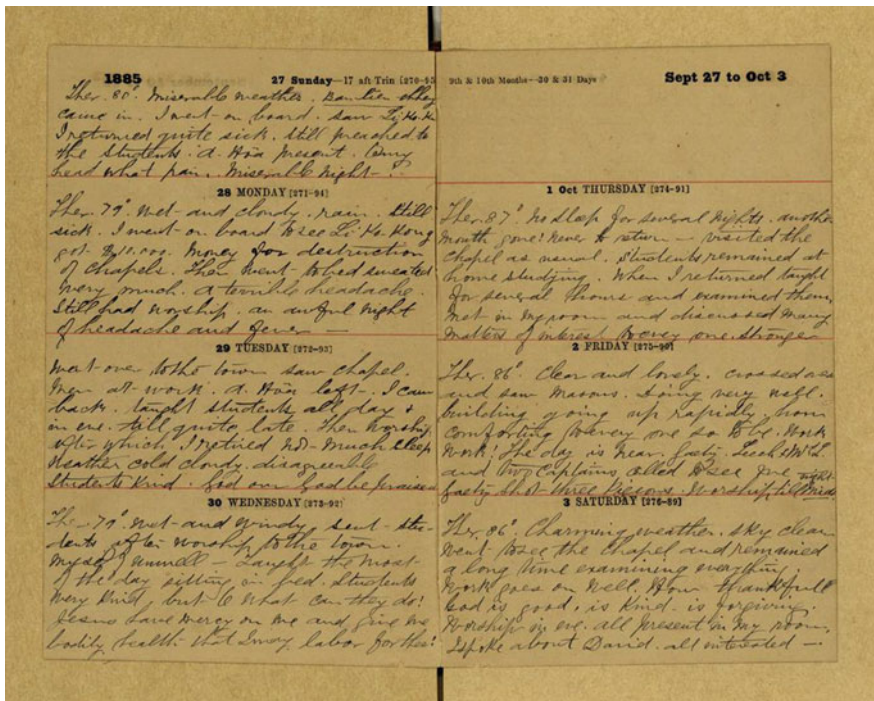 1885 27 Sunday—17 aft Trin [270-95
Ther. 80°. Miserable weather.
came in. I went on board. saw Li Ho. Ko
I returned quite sick. still preached to
the students. A. Hôa present. O my
head what pain. Miserable night—
28 MONDAY [271-94]
Ther. 79° wet and cloudy, rain. Still
sick. I went on board to see Li Ho. Kong
got $10,000. Money for destruction
of Chapels. Then went to bed sweated
very much. A terrible headache.
Still had worship. an awful night
of headache and fever —
29 TUESDAY [272-93]
Went over to the town saw chapel.
Men at work. A. Hôa left. I came
back. taught students all day &
in eve. till quite late. Then worship
after which I retired not much sleep
Weather cold cloudy. disagreeable
Students kind. God our God be praised
30 WEDNESDAY [273-92]
Ther. 79° wet and windy sent stu-
dents after worship to the town.
Myself unwell — taught the most
of the day sitting in bed. Students
very kind, but O what can they do!
Jesus have mercy on me and give me
bodily health that I may labor for thee!
9th & 10th Months—30 & 31 Days Sept 27 to Oct 3
1 Oct THURSDAY [274-91]
Ther. 87° No sleep for several nights. another
month gone! never to return — visited the
chapel as usual. Students remained at
home studying. When I returned taught
for several hours and examined them,
met in my room and discussed many
matters of interest to every one. Stronger
2 FRIDAY [275-90]
Ther. 86° Clear and lovely. crossed over
and saw masons. Doing very well.
building going up rapidly. how
comforting to every one so to be. Work
Work! The day is near.
and two captains called to see me
shot three pigeons. Worship till Midnight
3 SATURDAY [276-89]
Ther. 86° Charming weather. sky clear
Went to see the chapel and remained
a long time examining everything.
Work goes on well. How thankfull
God is good, is kind. is forgiving.
Worship in eve. all present in my room.
I spoke about David. all interested —